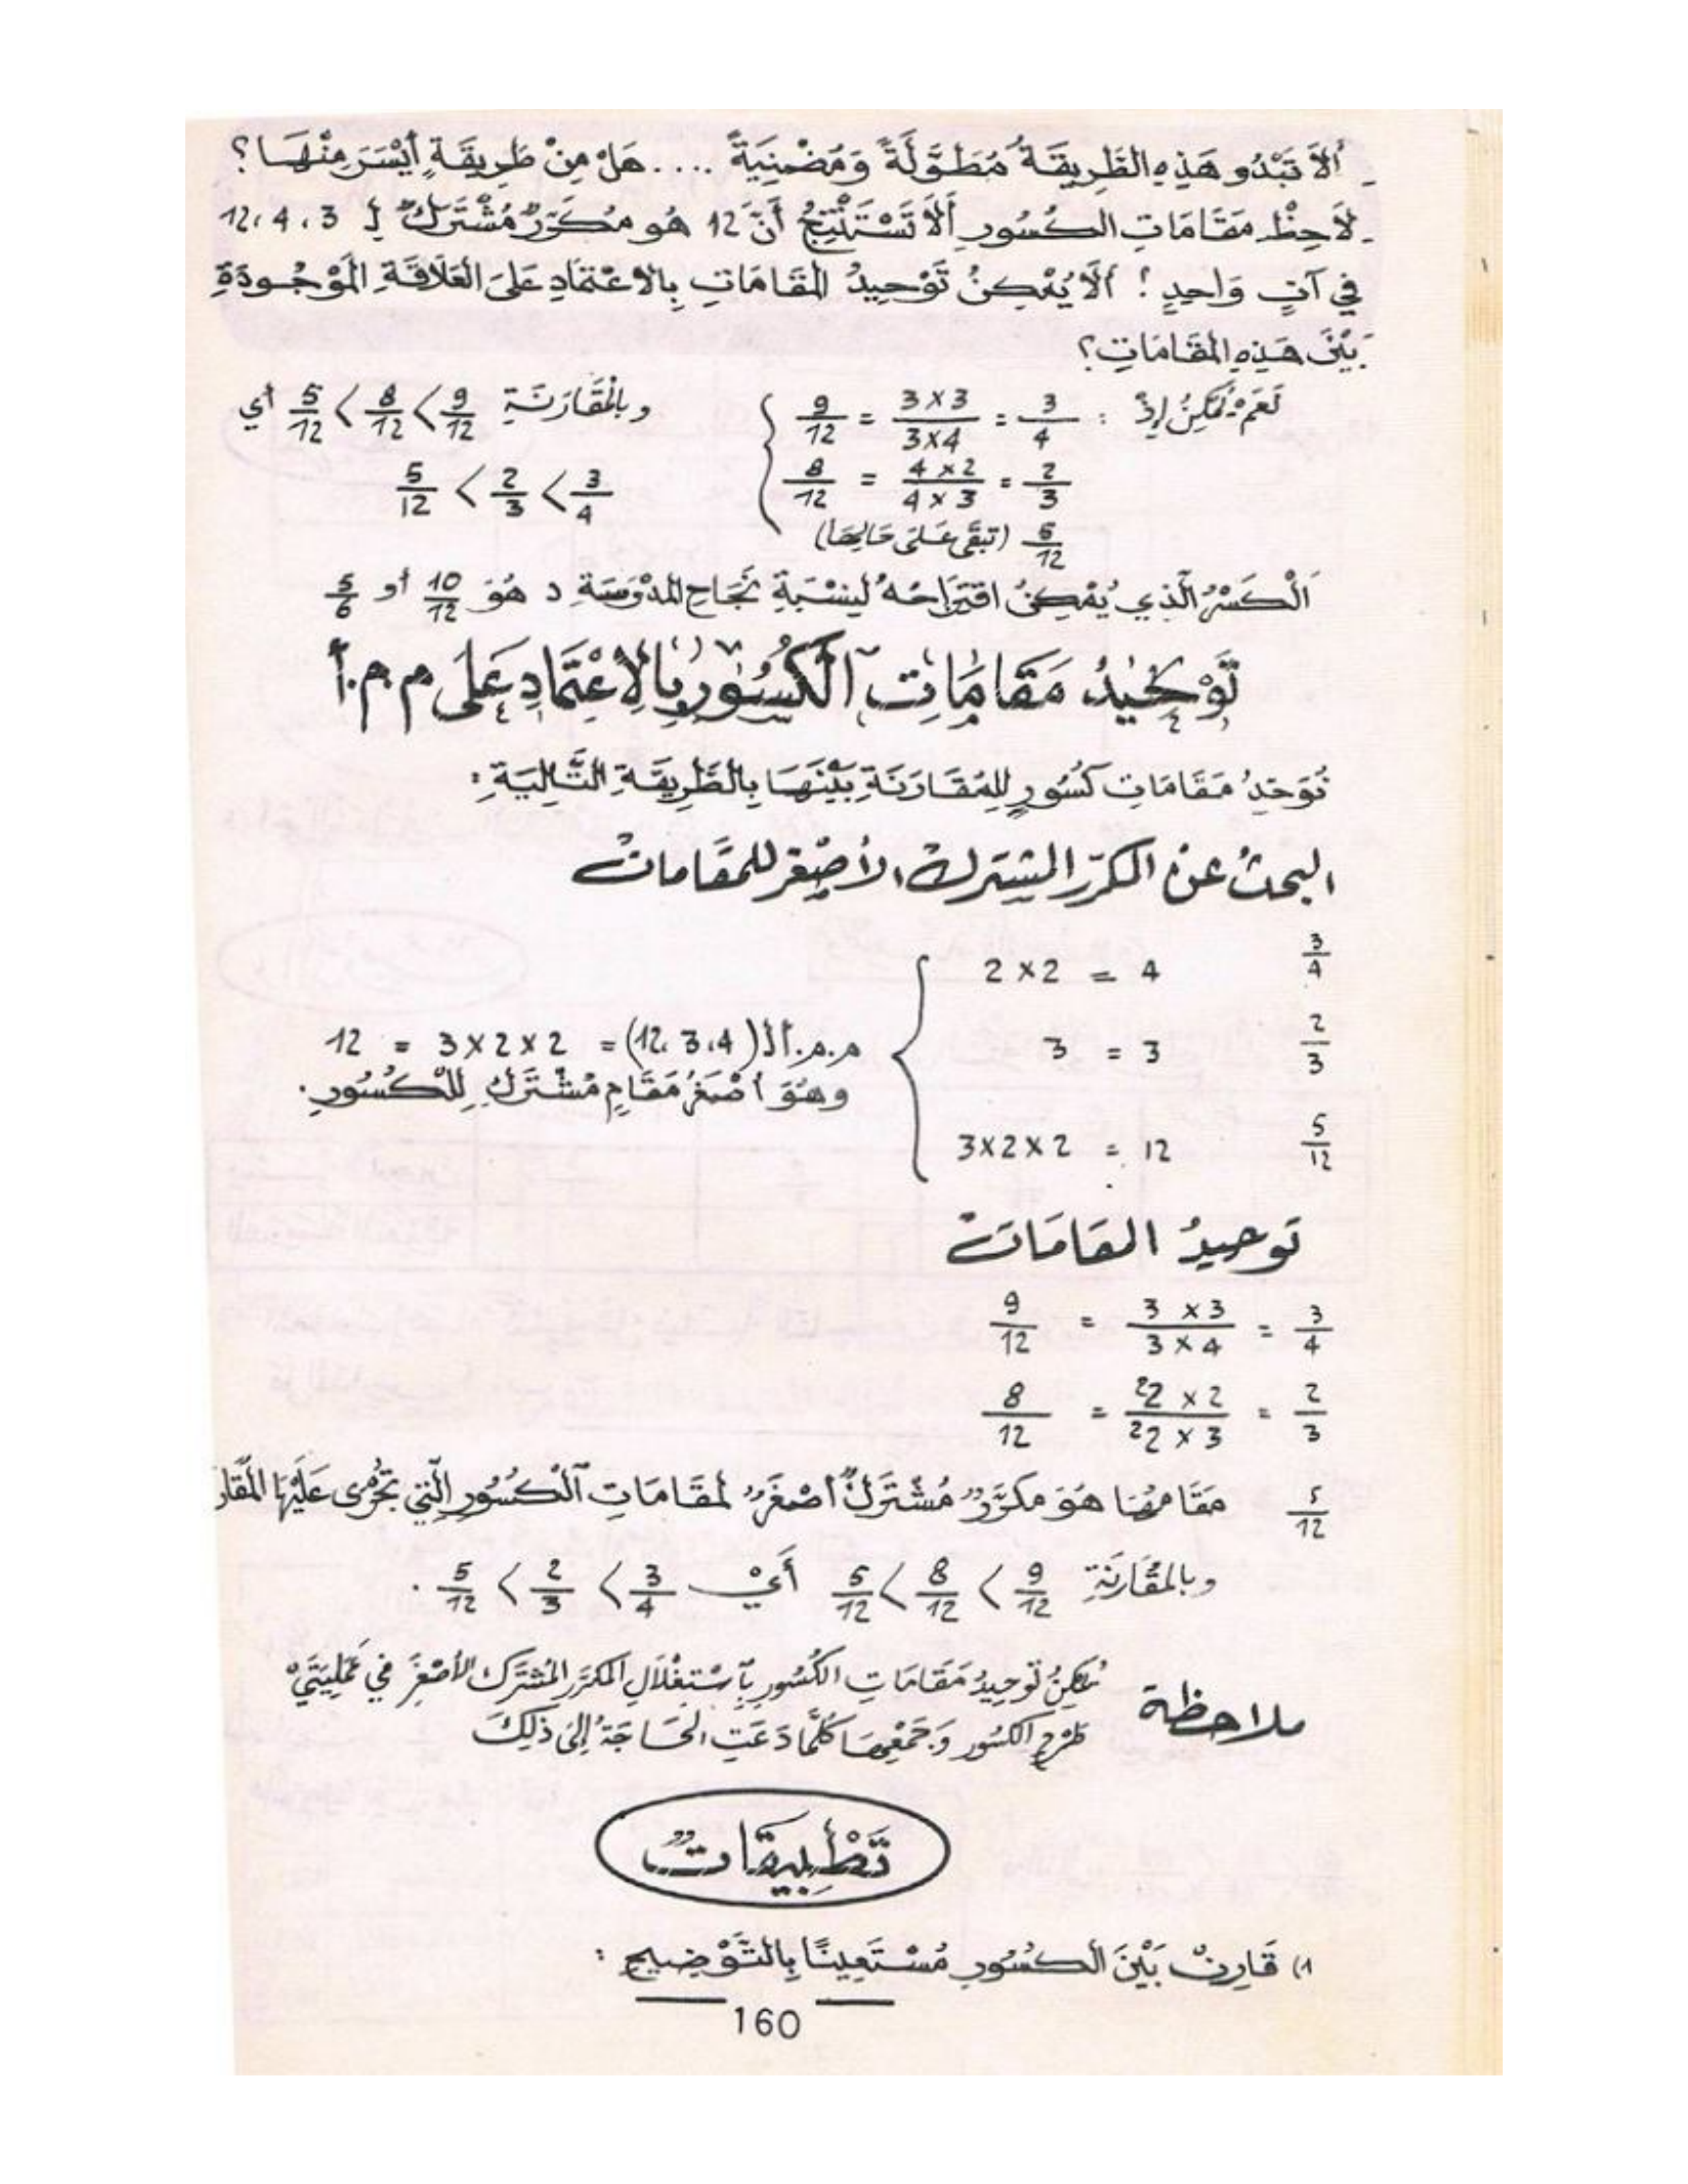 - أَلاَ تَبْدُو هَذِهِ الطَّرِيقَةُ مُطَوَّلَةً وَمُضْنِيَةً .... هَلْ مِنْ طَرِيقَةٍ أَيْسَرَ مِنْهَا؟
- لاَحِظْ مَقَامَاتِ الكُسُورِ أَلاَ تَسْتَنْتِجُ أَنَّ 12 هُو مُكَرَّرٌ مُشْتَرَكٌ لِـ 3 ، 4 ، 12
فِي آنٍ وَاحِدٍ ! أَلاَ يُمْكِنُ تَوْحِيدُ المَقَامَاتِ بِالاعْتِمَادِ عَلَى العَلاَقَةِ المَوْجُودَةِ
بَيْنَ هَذِهِ المَقَامَاتِ؟
نَعَمْ يُمْكِنُ إِذْ : 3/4 = 3×3 / 3×4 = 9/12 وبالمُقَارَنَةِ 9/12 > 8/12 > 5/12 أي
2/3 = 4×2 / 4×3 = 8/12 3/4 > 2/3 > 5/12
5/12 (تبقَى عَلَى حَالِهَا)
اَلْكَسْرُ الَّذِي يُمْكِنُ اقْتِرَاحُهُ لِنِسْبَةِ نَجَاحِ المَدْرَسَةِ د هُوَ 10/12 أو 5/6
تَوْحِيدُ مَقَامَاتِ الْكُسُورِ بِالاِعْتِمَادِ عَلَى م.م.أ
نُوَحِّدُ مَقَامَاتِ كُسُورٍ لِلمُقَارَنَةِ بَيْنَهَا بِالطَّرِيقَةِ التَّالِيَةِ :
البحثُ عن المكرّر المشترك الأصغر للمقامات
3/4 4 = 2×2
2/3 3 = 3 م.م.أ لـ (4، 3، 12) = 2×2×3 = 12
وهُوَ أصْغَرُ مَقَامٍ مُشْتَرَكٍ لِلْكُسُورِ.
5/12 12 = 2×2×3
تَوحيدُ المقَامَات
3/4 = 3×3 / 3×4 = 9/12
2/3 = 2²×2 / 2²×3 = 8/12
5/12 مَقَامُهَا هُوَ مُكَرَّرٌ مُشْتَرَكٌ أصْغَرُ لمَقَامَاتِ الْكُسُورِ الَّتِي تُجْرَى عَلَيْهَا المُقَار
وبالمُقَارَنَةِ 9/12 > 8/12 > 5/12 أَيْ 3/4 > 2/3 > 5/12 .
ملاحظة يُمْكِنُ تَوحِيدُ مَقَامَاتِ الكُسُورِ بِاسْتِغْلاَلِ المكرّرِ المُشْتَرَكِ الأصْغَرِ في عَمَلِيَتَيْ
طَرْحِ الكسُورِ وَجَمْعِهَا كُلَّمَا دَعَتِ الحَاجَةُ إلَى ذلِكَ
تَطْبِيقَاتٌ
1) قَارِنْ بَيْنَ الْكُسُورِ مُسْتَعِينًا بِالتَّوْضِيحِ :
160